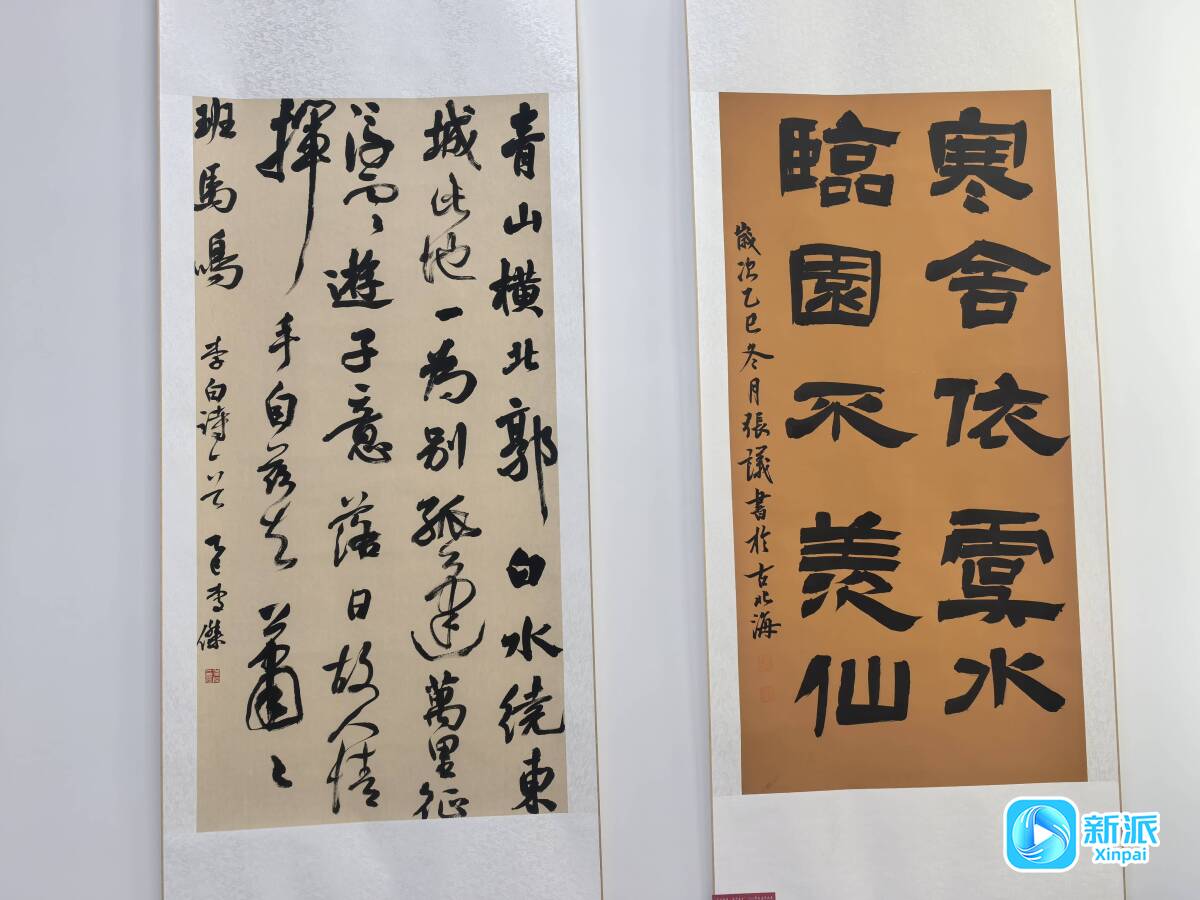 青山橫北郭白水繞東
城此地一為别孤蓬萬里征
浮雲遊子意落日故人情
揮手自茲去蕭〻
班馬鳴 李白詩一首 乙巳李傑
寒舍依雲水
臨園不羨仙
歲次乙巳冬月張議書於古北海
新派
Xinpai